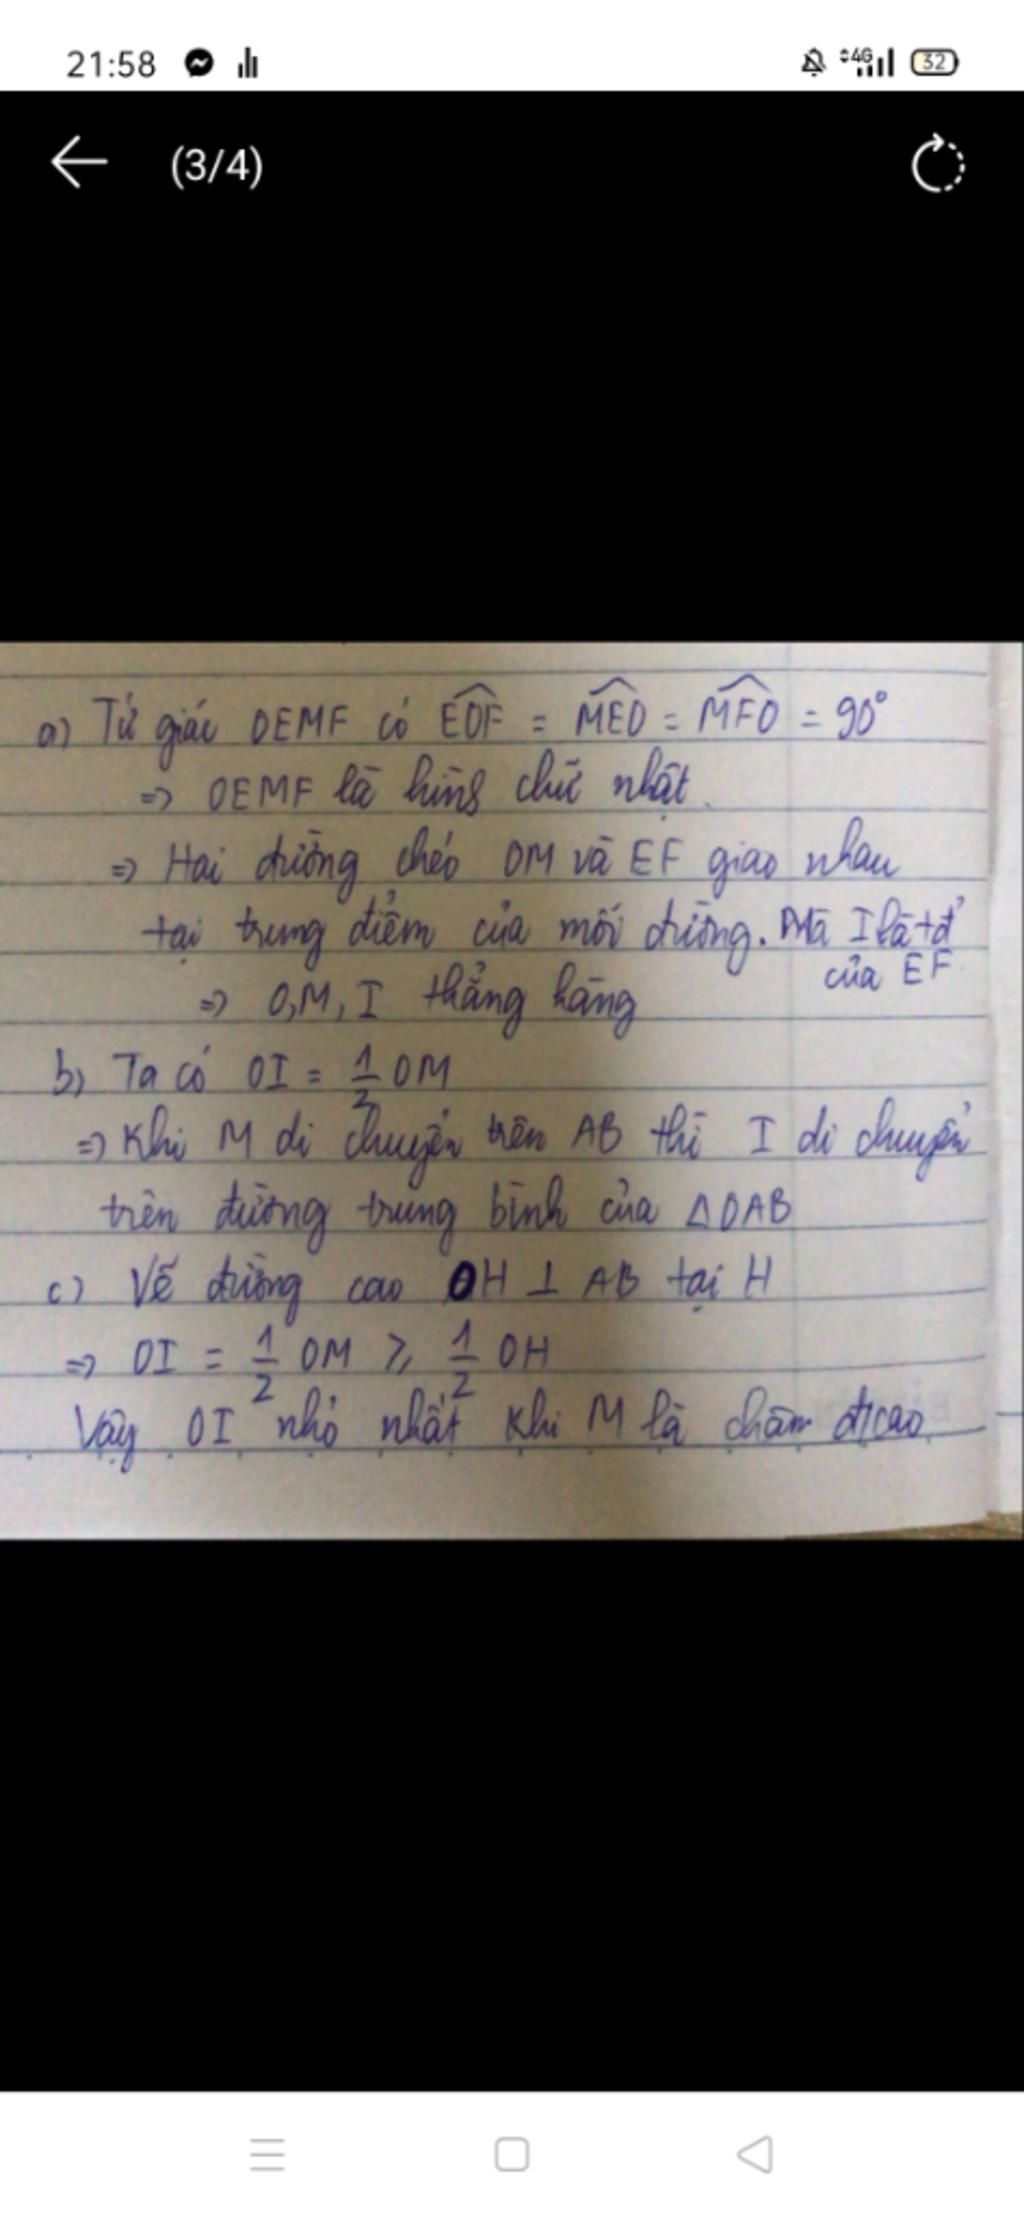 21:58
4G
32
(3/4)
a) Tứ giác OEMF có EOF = MEO = MFO = 90°
=> OEMF là hình chữ nhật.
=> Hai đường chéo OM và EF giao nhau
tại trung điểm của mỗi đường. Mà I là tđ
của EF
=> O,M,I thẳng hàng
b) Ta có OI = 1/2 OM
=> Khi M di chuyển trên AB thì I di chuyển
trên đường trung bình của ΔOAB
c) Vẽ đường cao OH ⊥ AB tại H
=> OI = 1/2 OM ≥ 1/2 OH
Vậy OI nhỏ nhất khi M là chân đ/cao